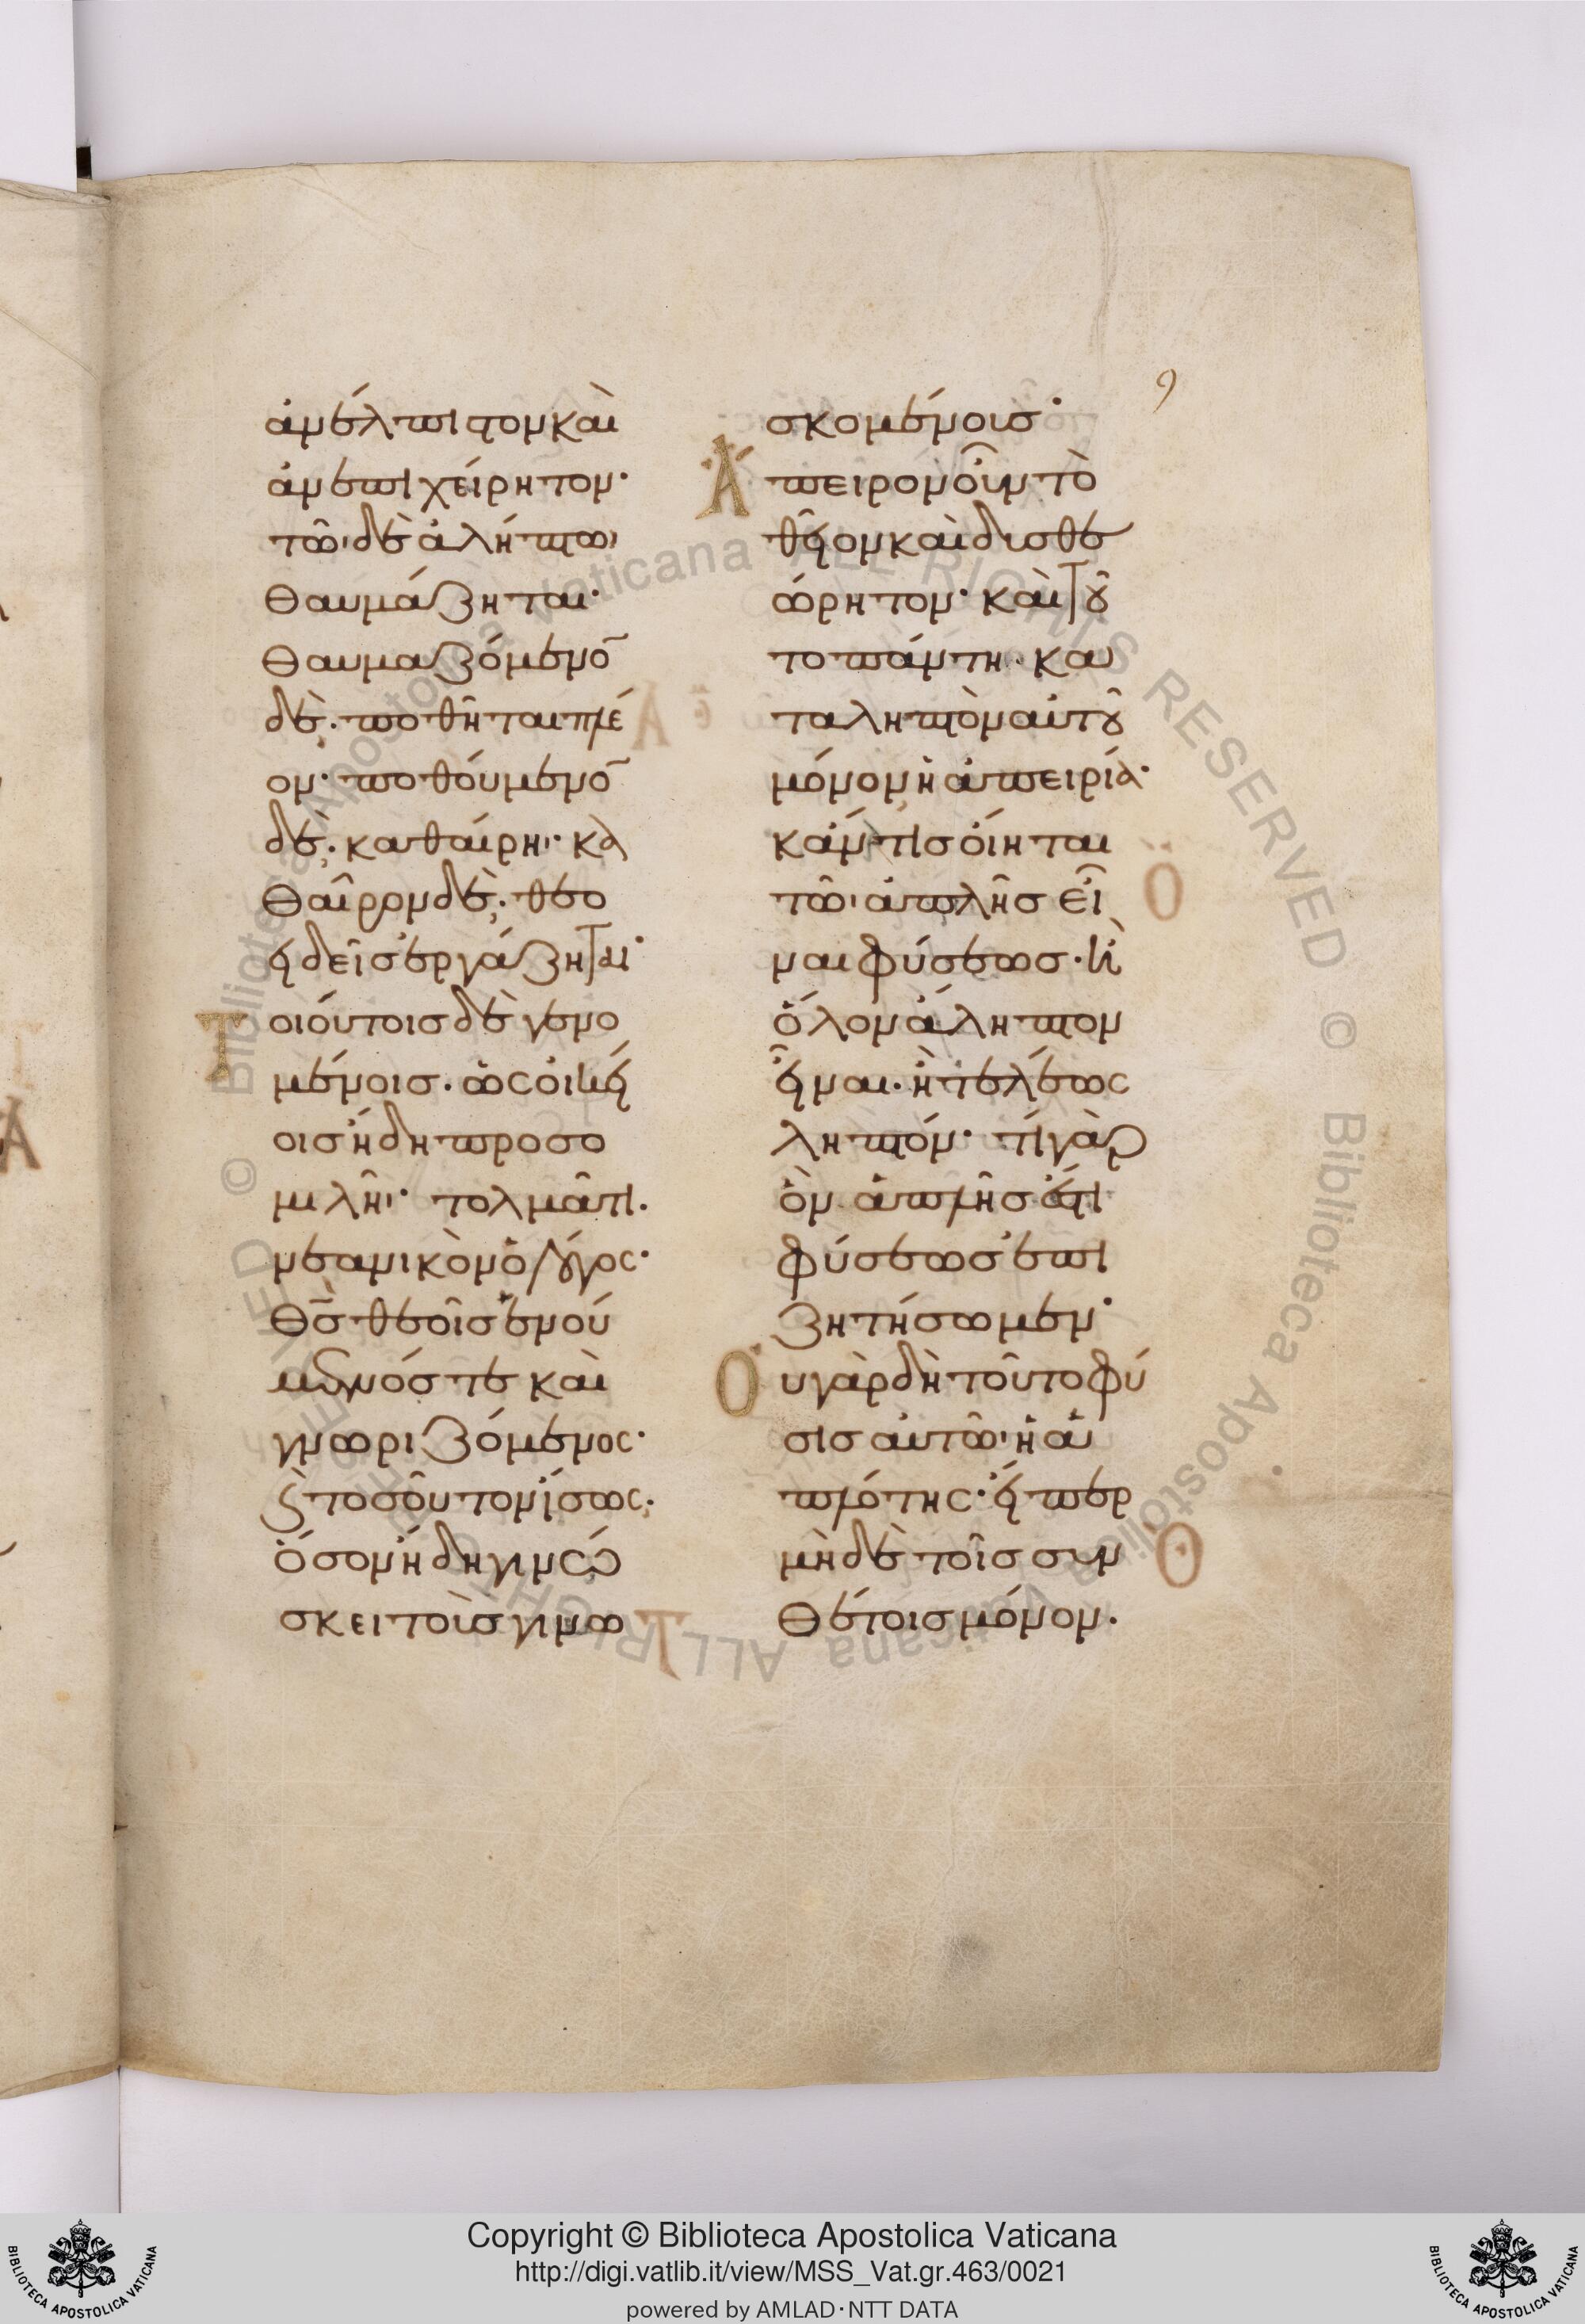 ἀνέλπιστον καὶ
ἀνεπιχείρητον·
τῶι δὲ ἀλήπτωι
θαυμάζηται·
θαυμαζόμενο̄
δὲ, ποθῆται πλέ
ον· ποθούμενο̄
δὲ, καθαίρηι· κα
θαῖρον δὲ, θεο
ειδεῖς ἐργάζηται·
Τοιούτοις δὲ γενο
μένοις. ὡς οἰκεί
οις ἤδη προσο
μιλῆι· τολμᾶ τι.
νεανικὸν ὁ λόγος·
θ̅ς̅ θεοῖς ἑνού
μενός τε καὶ
γνωριζόμενος·
καὶ τοσοῦτον ἴσως,
ὅσον ἤδη γινώ
σκει τοὺς γινω
σκομένους·
Ἄπειρον οὖν τὸ
θεῖον καὶ δυσθε
ώρητον· καὶ τοῦ
το πάντη κα
ταληπτὸν αὐτοῦ
μόνον ἡ ἀπειρία·
κἄν τις οἴηται
τῶι ἁπλῆς εἶ
ναι φύσεως· ἢ
ὅλον ἄληπτον
εἶναι. ἢ τελέως
ληπτόν· τί γὰρ
ὂν ἁπλῆς ἐστι
φύσεως ἐπι
ζητήσωμεν·
Οὐ γὰρ δὴ τοῦτο φύ
σις αὐτῶι ἡ ἁ
πλότης· εἴπερ
μὴ δὲ τοῖς συν
θέτοις μόνον.
Copyright © Biblioteca Apostolica Vaticana
http://digi.vatlib.it/view/MSS_Vat.gr.463/0021
powered by AMLAD·NTT DATA